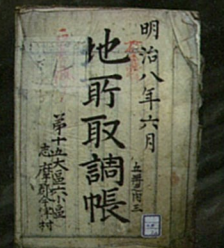 明治八年六月
地所取調帳
第十五大區六小區
志摩郡
村